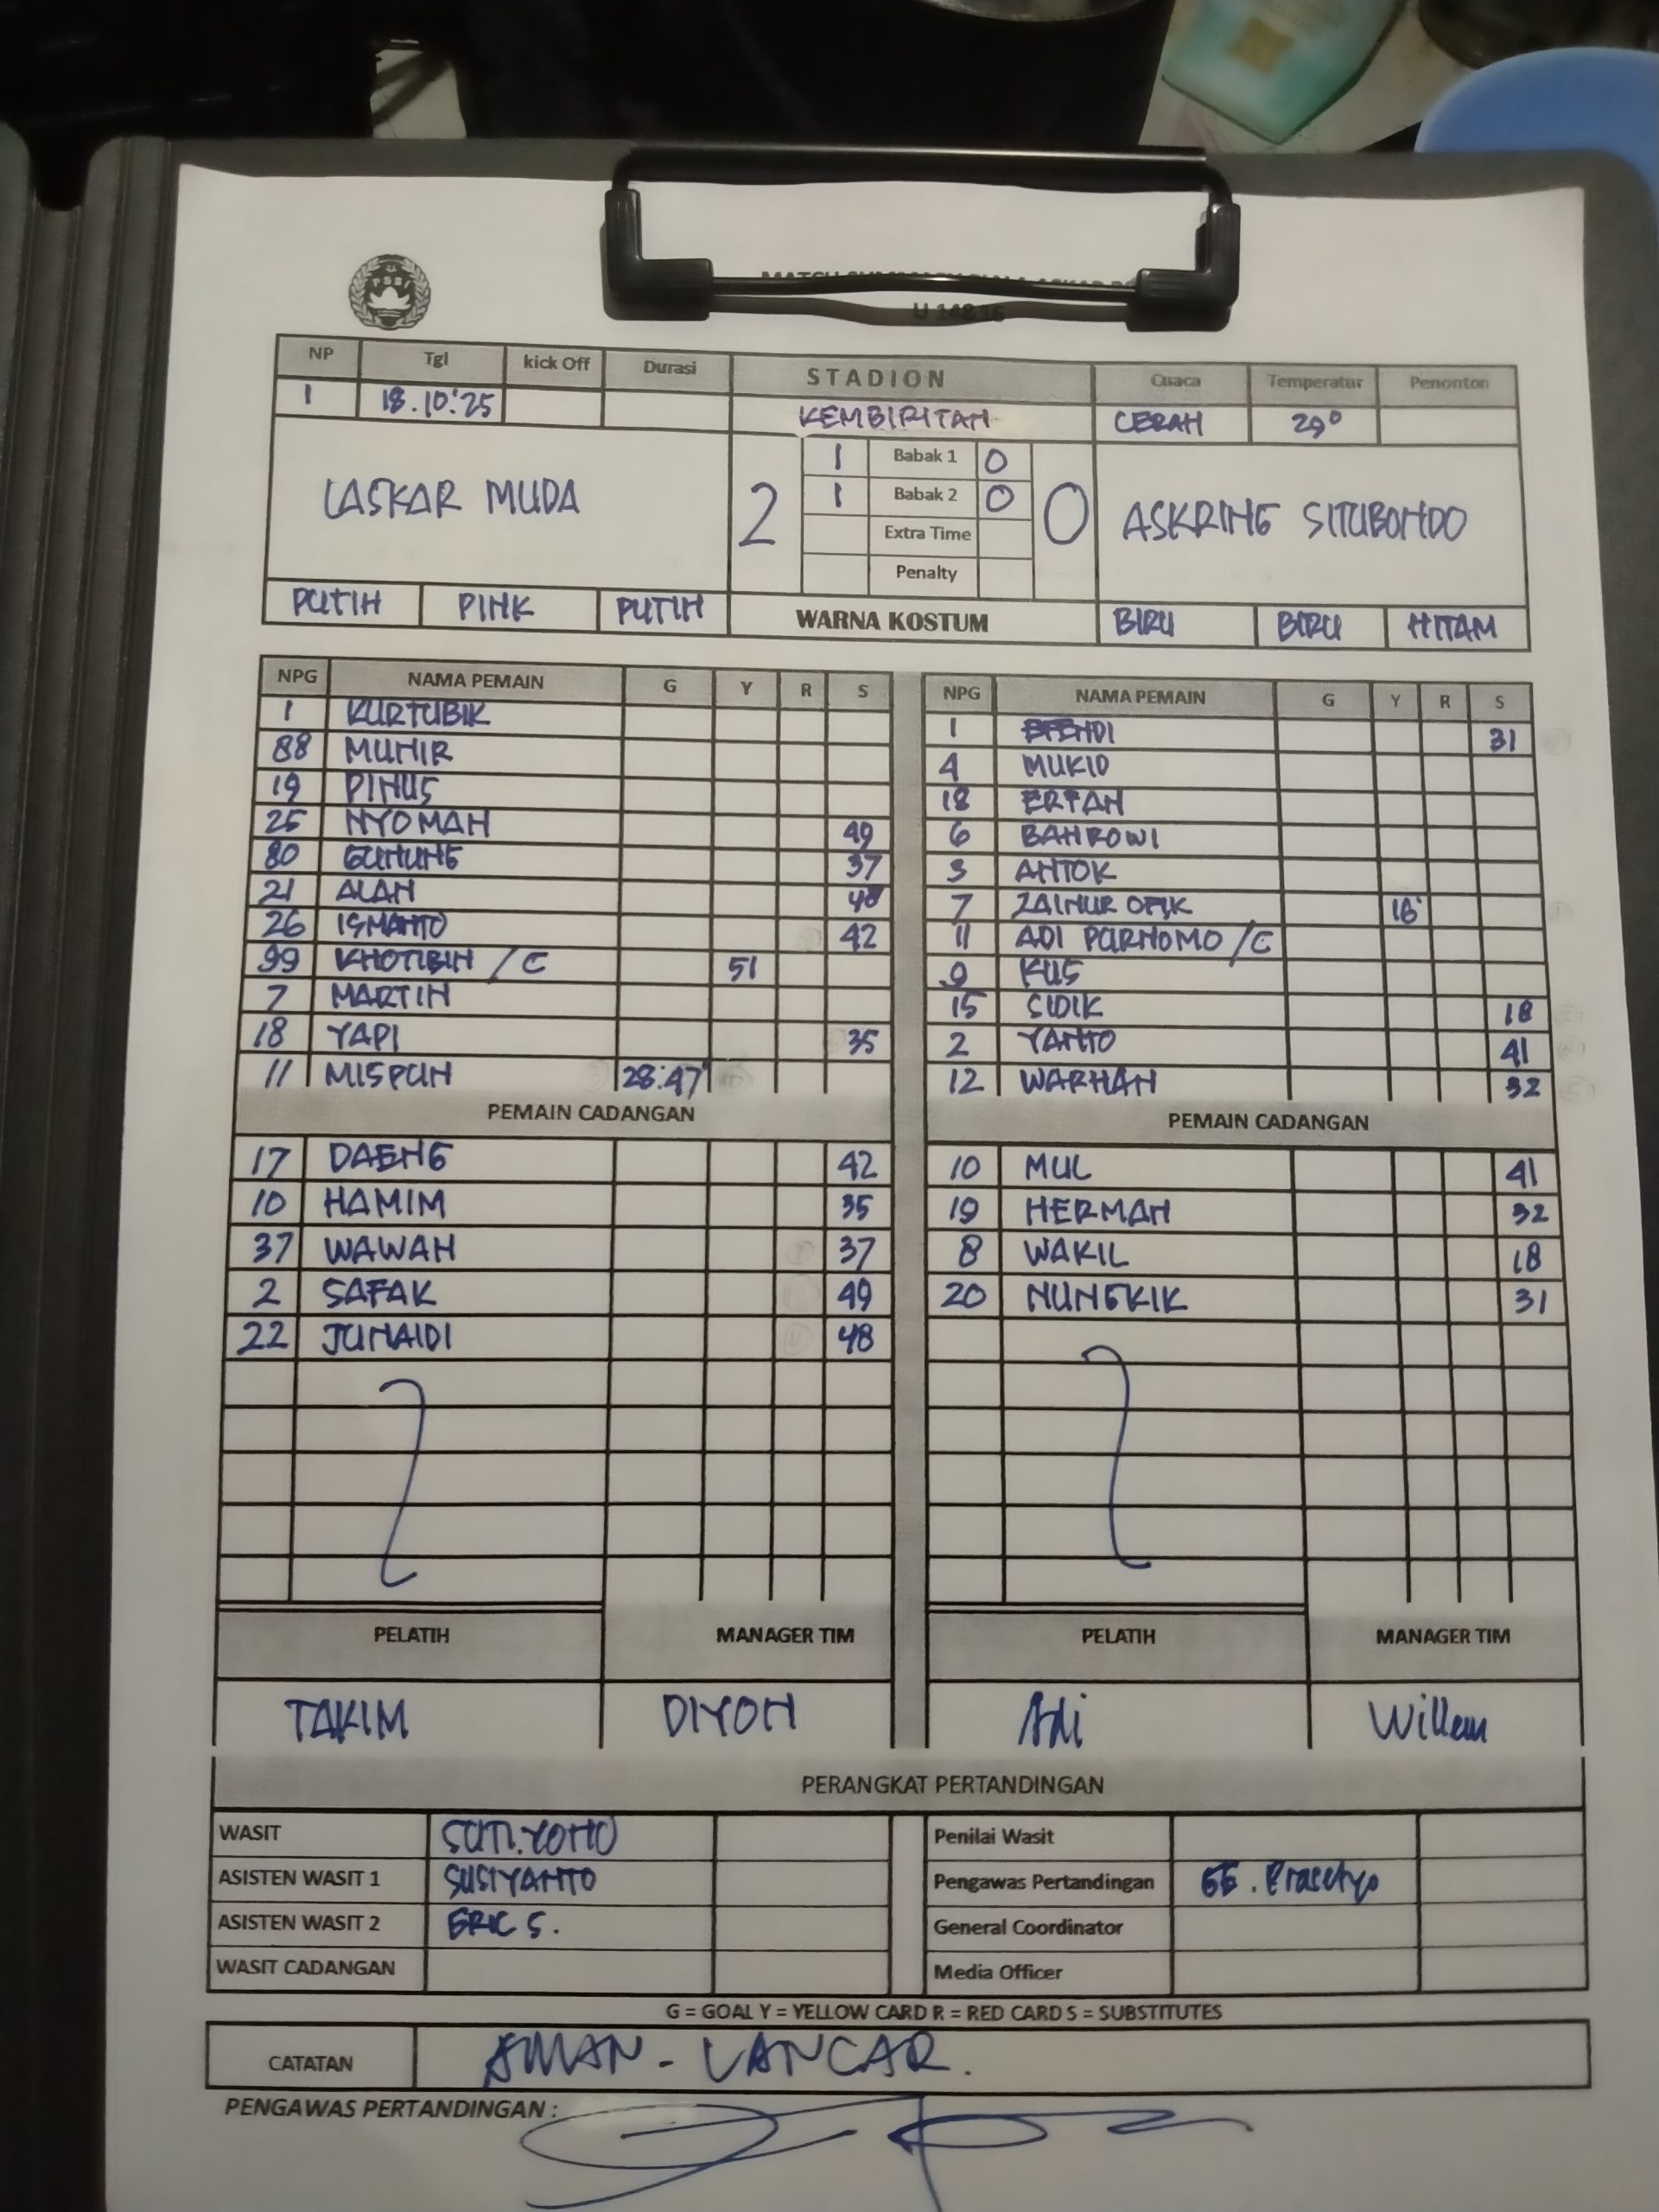 PSSI
NP Tgl kick Off Durasi STADION Cuaca Temperatur Penonton
1 18.10.'25 KEMBIRITAN CERAH 29°
LASKAR MUDA 2 0 ASKRING SITUBONDO
1 Babak 1 0
1 Babak 2 0
Extra Time
Penalty
PUTIH PINK PUTIH WARNA KOSTUM BIRU BIRU HITAM
NPG NAMA PEMAIN G Y R S NPG NAMA PEMAIN G Y R S
1 KURTUBIK 1 EFENDI 31
88 MUNIR 4 MUKID
19 PINUS 18 ERFAN
25 NYOMAN 49 6 BAHROWI
80 GUNUNG 37 3 ANTOK
21 ALAN 48 7 ZAINUR OFIK 16'
26 ISMANTO 42 11 ADI PURNOMO /C
99 KHOTIBIN /C 51 9 KUS
7 MARTIN 15 SIDIK 18
18 YAPI 35 2 YANTO 41
11 MISPUN 28'.47' 12 WARHAN 32
PEMAIN CADANGAN PEMAIN CADANGAN
17 DAENG 42 10 MUL 41
10 HAMIM 35 19 HERMAN 32
37 WAWAN 37 8 WAKIL 18
2 SAFAK 49 20 NUNGKIK 31
22 JUNAIDI 48
PELATIH MANAGER TIM PELATIH MANAGER TIM
TAKIM DIYON Adi Willem
PERANGKAT PERTANDINGAN
WASIT SUTI.YONO Penilai Wasit
ASISTEN WASIT 1 SUSIYANTO Pengawas Pertandingan . Prasetyo
ASISTEN WASIT 2 ERIC S. General Coordinator
WASIT CADANGAN Media Officer
G = GOAL Y = YELLOW CARD R = RED CARD S = SUBSTITUTES
CATATAN AMAN - LANCAR.
PENGAWAS PERTANDINGAN :